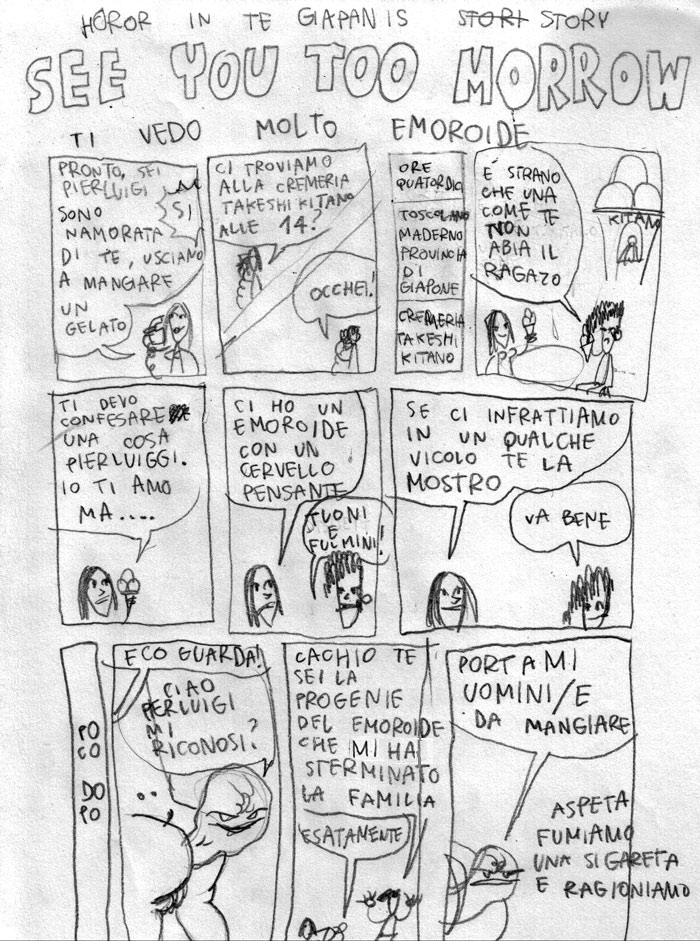 HOROR IN TE GIAPANIS STORI STORY
SEE YOU TOO MORROW
TI VEDO MOLTO EMOROIDE
PRONTO, SEI
PIERLUIGI
SONO
NAMORATA
DI TE, USCIANO
A MANGIARE
UN
GELATO
SI
CI TROVIAMO
ALLA CREMERIA
TAKESHI KITANO
ALLE 14?
OCCHEI!
ORE
QUATORDICI
TOSCOLANO
MADERNO
PROVINCIA
DI
GIAPONE
CREMERIA
TAKESHI
KITANO
É STRANO
CHE UNA
COME TE
NON
ABIA IL
RAGAZO
KITANO
TI DEVO
CONFESARE
UNA COSA
PIERLUIGGI.
IO TI AMO
MA.....
CI HO UN
EMOROIDE
CON UN
CERVELLO
PENSANTE
TUONI
E
FULMINI!
SE CI INFRATTIAMO
IN UN QUALCHE
VICOLO TE LA
MOSTRO
VA BENE
PO
CO
DO
PO
ECO GUARDA!
CIAO
PIERLUIGI
MI
RICONOSI?
CACHIO TE
SEI LA
PROGENIE
DEL EMOROIDE
CHE MI HA
STERMINATO
LA FAMILIA
ESATAMENTE
PORTAMI
UOMINI/E
DA MANGIARE
ASPETA
FUMIAMO
UNA SIGARETA
E RAGIONIAMO